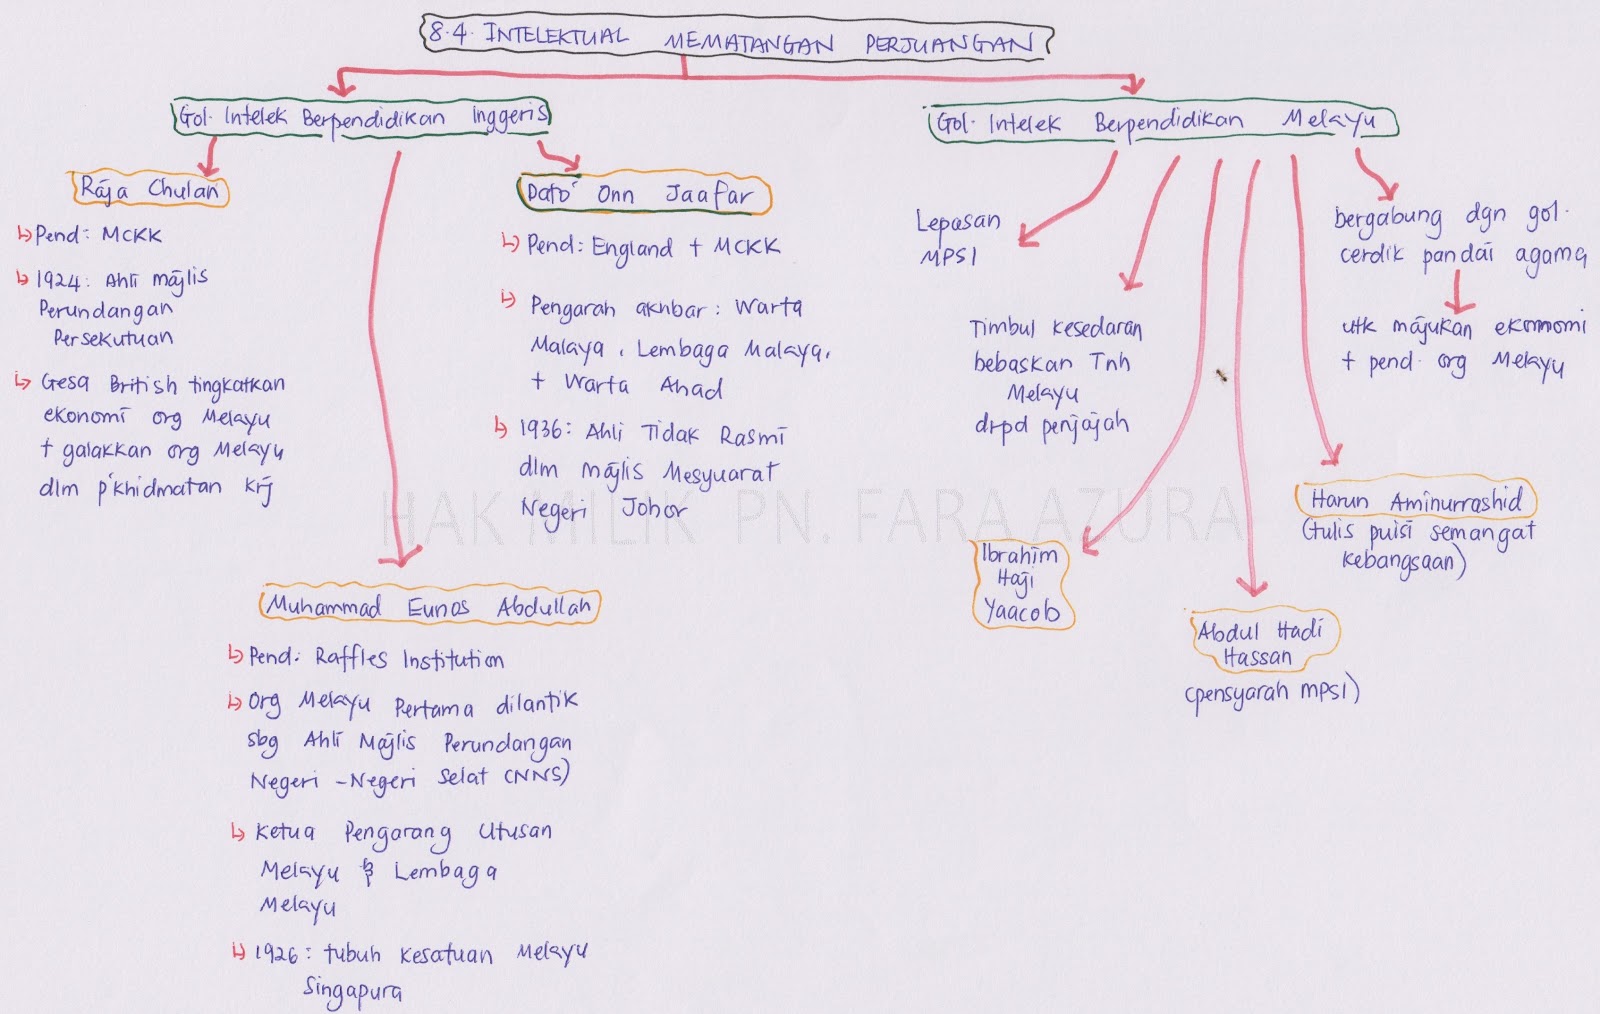 8.4. INTELEKTUAL MEMATANGAN PERJUANGAN
Gol. Intelek Berpendidikan Inggeris
Raja Chulan
↳ Pend: MCKK
↳ 1924: Ahli majlis
Perundangan
Persekutuan
↳ Gesa British tingkatkan
ekonomi org Melayu
+ galakkan org Melayu
dlm p'khidmatan krj
Dato' Onn Jaafar
↳ Pend: England + MCKK
↳ Pengarah akhbar: Warta
Malaya, Lembaga Malaya,
+ Warta Ahad
↳ 1936: Ahli Tidak Rasmi
dlm majlis Mesyuarat
Negeri Johor
Muhammad Eunos Abdullah
↳ Pend: Raffles Institution
↳ Org Melayu Pertama dilantik
sbg Ahli Majlis Perundangan
Negeri-Negeri Selat (NNS)
↳ Ketua Pengarang Utusan
Melayu & Lembaga
Melayu
↳ 1926: tubuh Kesatuan Melayu
Singapura
Gol. Intelek Berpendidikan Melayu
Lepasan
MPSI
Timbul kesedaran
bebaskan Tnh
Melayu
drpd penjajah
Ibrahim
Haji
Yaacob
Abdul Hadi
Hassan
(pensyarah MPSI)
Harun Aminurrashid
(tulis puisi semangat
kebangsaan)
bergabung dgn gol.
cerdik pandai agama
utk majukan ekonomi
+ pend. org Melayu
HAK MILIK PN. FARA AZURA